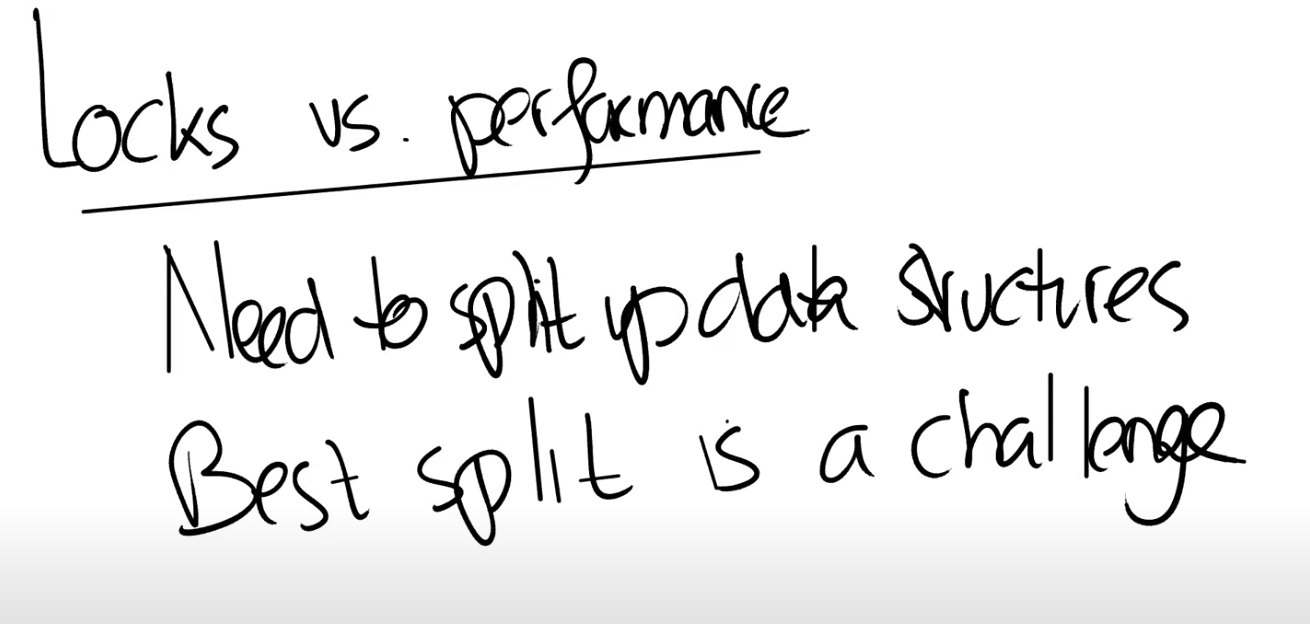 Locks vs. performance
Need to split up data structures
Best split is a challenge